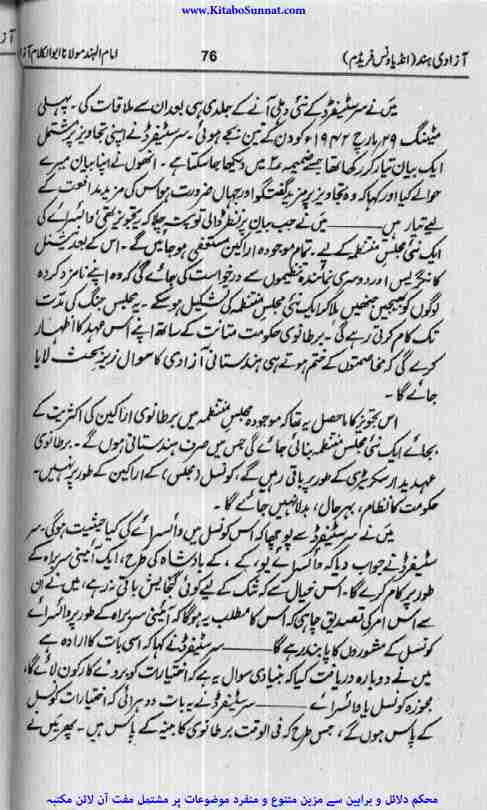 www.KitaboSunnat.com
آزادی ہند (انڈیا ونس فریڈم)
76
امام الہند مولانا ابوالکلام آزاد
میں نے سر سٹیفرڈ کے نئی دہلی آنے کے جلد ہی بعد ان سے ملاقات کی۔ پہلی
میٹنگ ۲۹ مارچ ۱۹۴۲ء کو دن کے تین بجے ہوئی۔ سر سٹیفرڈ نے اپنی تجاویز پر مشتمل
ایک بیان تیار کر رکھا تھا جسے ضمیمہ میں دیکھا جا سکتا ہے۔ انھوں نے اپنا بیان میرے
حوالے کیا اور کہا کہ وہ تجاویز پر مزید گفتگو اور جہاں ضرورت ہو اس کی مزید مدافعت کے
لیے تیار ہیں ——— میں نے جب بیان پر نظر ڈالی تو پتہ چلا کہ یہ تجویز تھی وائسرائے کی
ایک نئی مجلس منتظمہ کے لیے۔ تمام موجودہ اراکین مستعفی ہو جائیں گے۔ اس کے بعد نیشنل
کانگریس اور دوسری نمائندہ تنظیموں سے درخواست کی جائے گی کہ وہ اپنے نامزد کردہ
لوگوں کو بھیجیں جنھیں ملا کر ایک نئی مجلس منتظمہ کی تشکیل ہو سکے۔ یہ مجلس جنگ کی مدّت
تک کام کرتی رہے گی۔ برطانوی حکومت متانت کے ساتھ اپنے اس عہد کا اظہار
کرے گی کہ مخاصمتوں کے ختم ہوتے ہی ہندستانی آزادی کا سوال زیرِ بحث لایا
جائے گا۔
اس تجویز کا ماحصل یہ تھا کہ موجودہ مجلس منتظمہ میں برطانوی اراکین کی اکثریت کے
بجائے ایک نئی مجلس منتظمہ بنائی جائے گی جس میں صرف ہندستانی ہوں گے۔ برطانوی
عہدیدار سکریٹری کے طور پر باقی رہیں گے، کونسل (مجلس) کے اراکین کے طور پر نہیں۔
حکومت کا نظام، بہرحال، بدلا نہیں جائے گا۔
میں نے سر سٹیفرڈ سے پوچھا کہ اس کونسل میں وائسرائے کی کیا حیثیت ہوگی۔ سر
سٹیفرڈ نے جواب دیا کہ وائسرائے یو، کے، کے بادشاہ کی طرح، ایک آئینی سربراہ کے
طور پر کام کرے گا۔ اس خیال سے کہ شک کے لیے کوئی گنجایش باقی نہ رہے، میں نے ان
سے اس امر کی تصدیق چاہی کہ اس کا مطلب یہ ہوگا کہ آئینی سربراہ کے طور پر وائسرائے
کونسل کے مشوروں کا پابند رہے گا ——— سر سٹیفرڈ نے کہا کہ اسی بات کا ارادہ ہے
میں نے دوبارہ دریافت کیا کہ بنیادی سوال یہ ہے کہ اختیارات کو بروئے کار کون لائے گا،
مجوزہ کونسل یا وائسرائے ——— سر سٹیفرڈ نے یہ بات دوہرائی کہ اختیارات کونسل
کے پاس ہوں گے، جس طرح کہ فی الوقت برطانوی کابینہ کے پاس ہیں۔ پھر میں نے
محکم دلائل و براہین سے مزین متنوع و منفرد موضوعات پر مشتمل مفت آن لائن مکتبہ